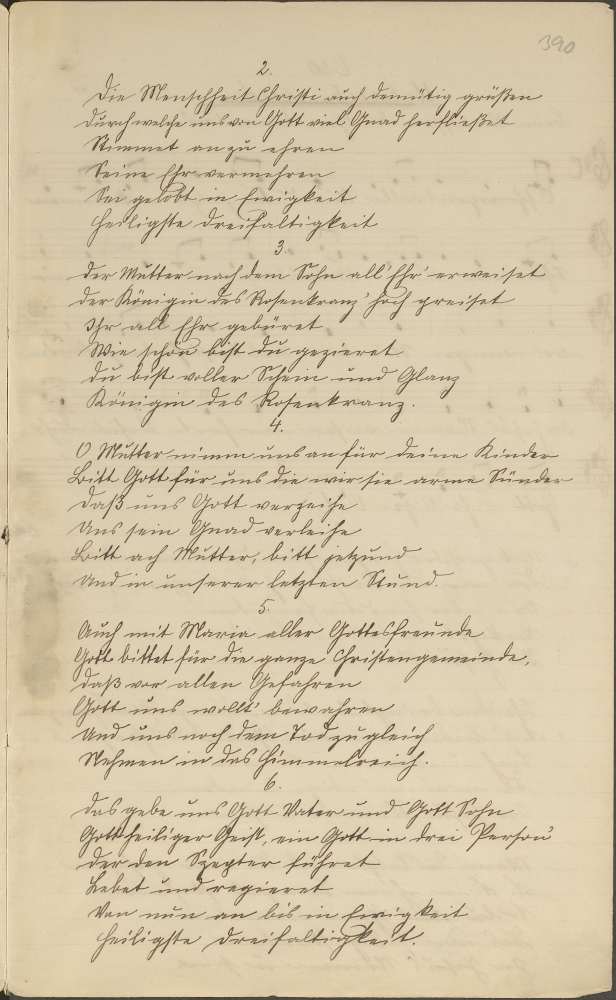 390
2.
Die Menschheit Christi auch demütig grüßen
Durch welche uns von Gott viel Gnad herfließet
Stimmet an zu ehren
Seine Ehr vermehren
Sei gelobt in Ewigkeit
Heiligste Dreifaltigkeit
3.
Der Mutter nach dem Sohn all' Ehr' erweiset
Der Königin des Rosenkranz' hoch preiset
Ihr all Ehr gebüret
Wie schön bist du gezieret
Du bist voller Schein und Glanz
Königin des Rosenkranz.
4.
O Mutter nimm uns an für deine Kinder
Bitt Gott für uns die wir sie arme Sünder
Daß uns Gott verzeihe
Uns sein Gnad verleihe
Bitt ach Mutter, bitt jetzund
Und in unserer letzten Stund.
5.
Auch mit Maria aller Gottesfreunde
Gott bittet für die ganze Christengemeinde,
Daß vor allen Gefahren
Gott uns wollt' bewahren
Und uns nach dem Tod zugleich
Nehmen in das Himmelreich.
6.
Das gebe uns Gott Vater und Gott Sohn
Gott heiliger Geist, ein Gott in drei Person'
Der den Szepter führet
Lebet und regieret
Von nun an bis in Ewigkeit
Heiligste Dreifaltigkeit.